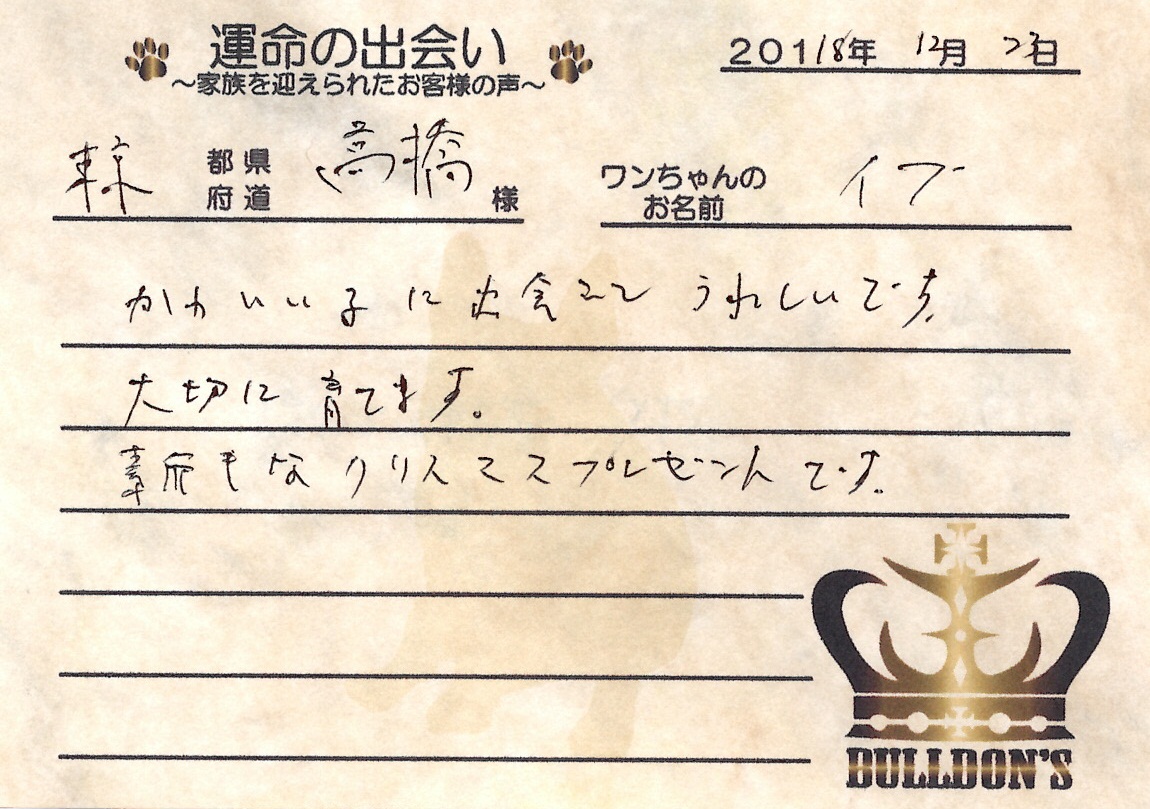 運命の出会い
～家族を迎えられたお客様の声～
2018年 12月 23日
東京 都県府道 高橋 様
ワンちゃんのお名前 イブ
かわいい子に出会えて うれしいです。
大切に育てます。
クリスマスプレゼントです。
BULLDON'S